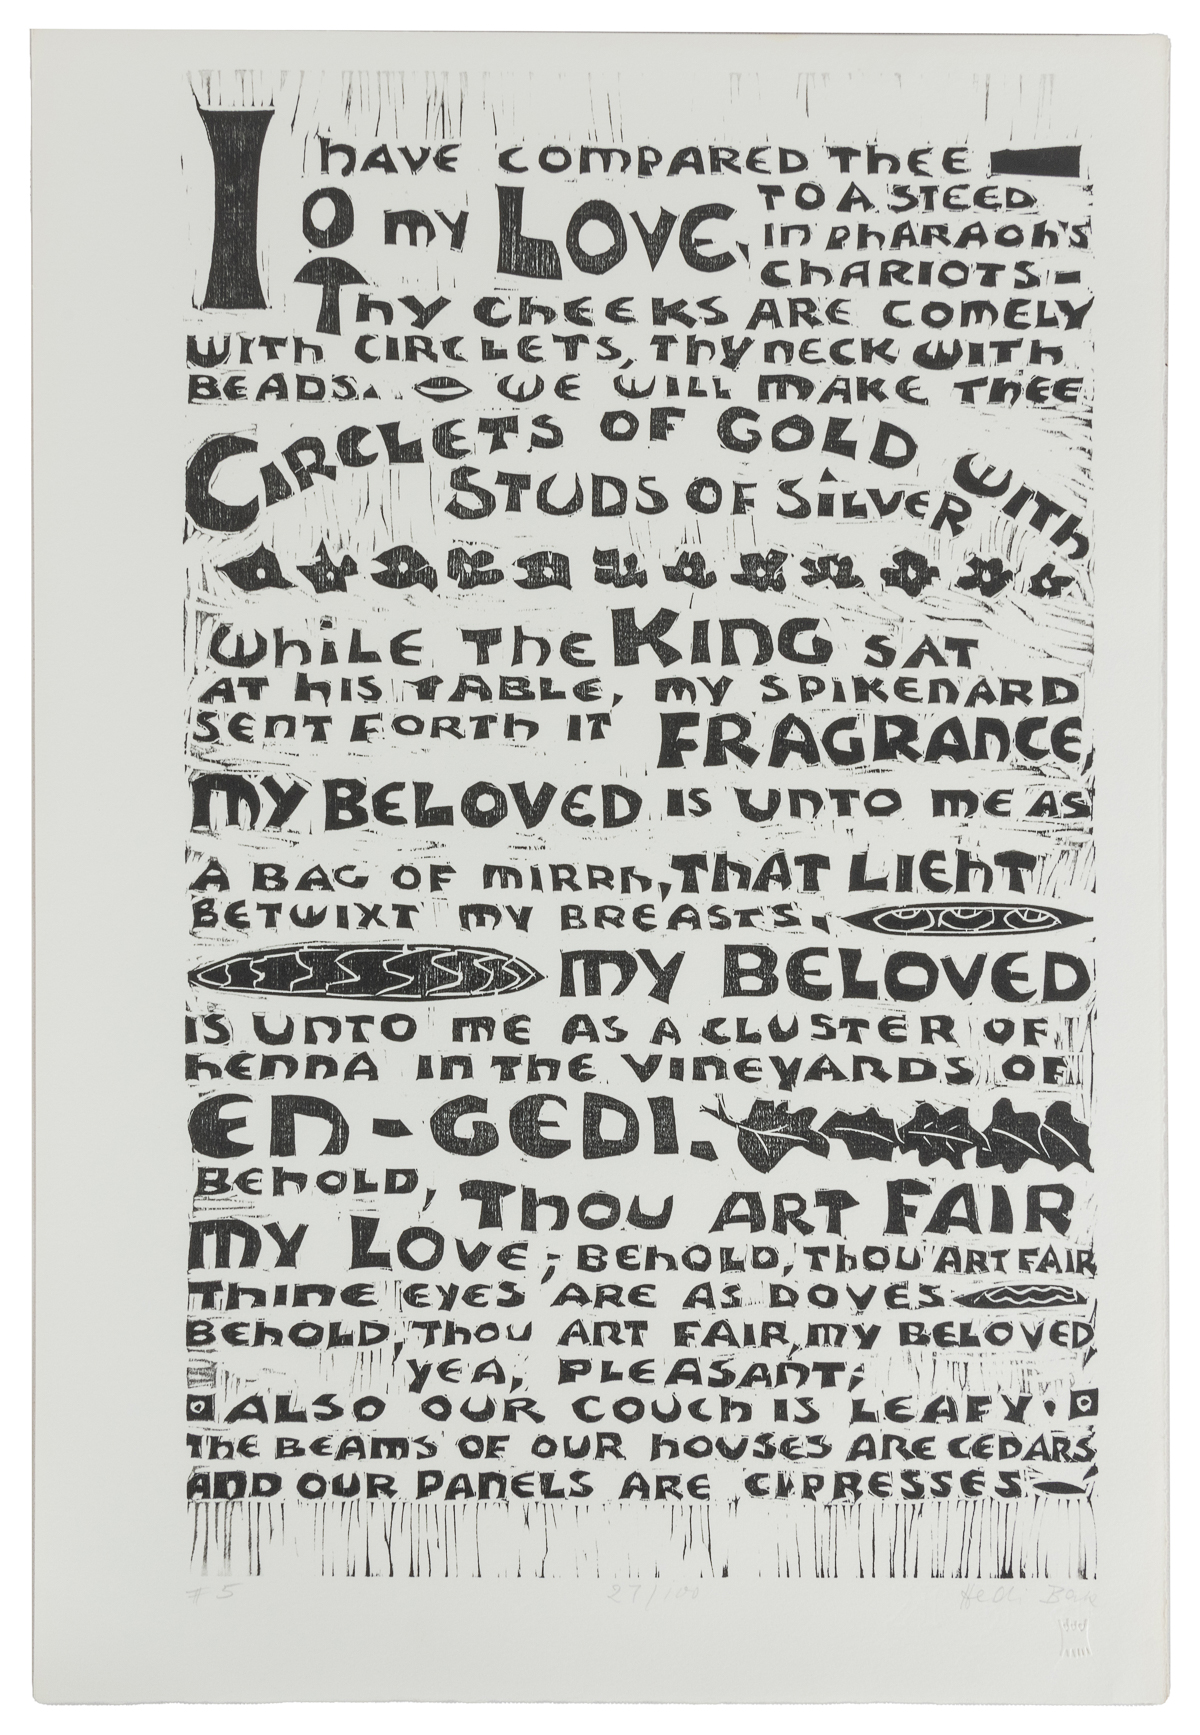 I HAVE COMPARED THEE
O MY LOVE,
TO A STEED
IN PHARAOH'S
CHARIOTS-
THY CHEEKS ARE COMELY
WITH CIRCLETS, THY NECK WITH
BEADS. WE WILL MAKE THEE
CIRCLETS OF GOLD WITH
STUDS OF SILVER
WHILE THE KING SAT
AT HIS TABLE, MY SPIKENARD
SENT FORTH IT FRAGRANCE,
MY BELOVED IS UNTO ME AS
A BAG OF MIRRH, THAT LIEHT
BETWIXT MY BREASTS.
MY BELOVED
IS UNTO ME AS A CLUSTER OF
HENNA IN THE VINEYARDS OF
EN-GEDI.
BEHOLD, THOU ART FAIR
MY LOVE; BEHOLD, THOU ART FAIR
THINE EYES ARE AS DOVES
BEHOLD, THOU ART FAIR, MY BELOVED,
YEA, PLEASANT;
ALSO OUR COUCH IS LEAFY.
THE BEAMS OF OUR HOUSES ARE CEDARS
AND OUR PANELS ARE CYPRESSES-
# 5 27/100